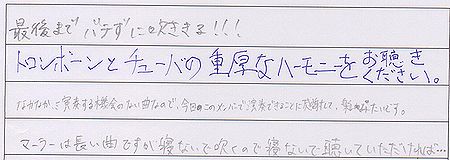 最後までバテずに吹ききる!!!
トロンボーンとチューバの重厚なハーモニーをお聴きください。
なかなか演奏する機会のない曲なので、今日のこのメンバーで演奏できることに感謝して、たいです。
マーラーは長い曲ですが寝ないで吹くので寝ないで聴いていただければ…